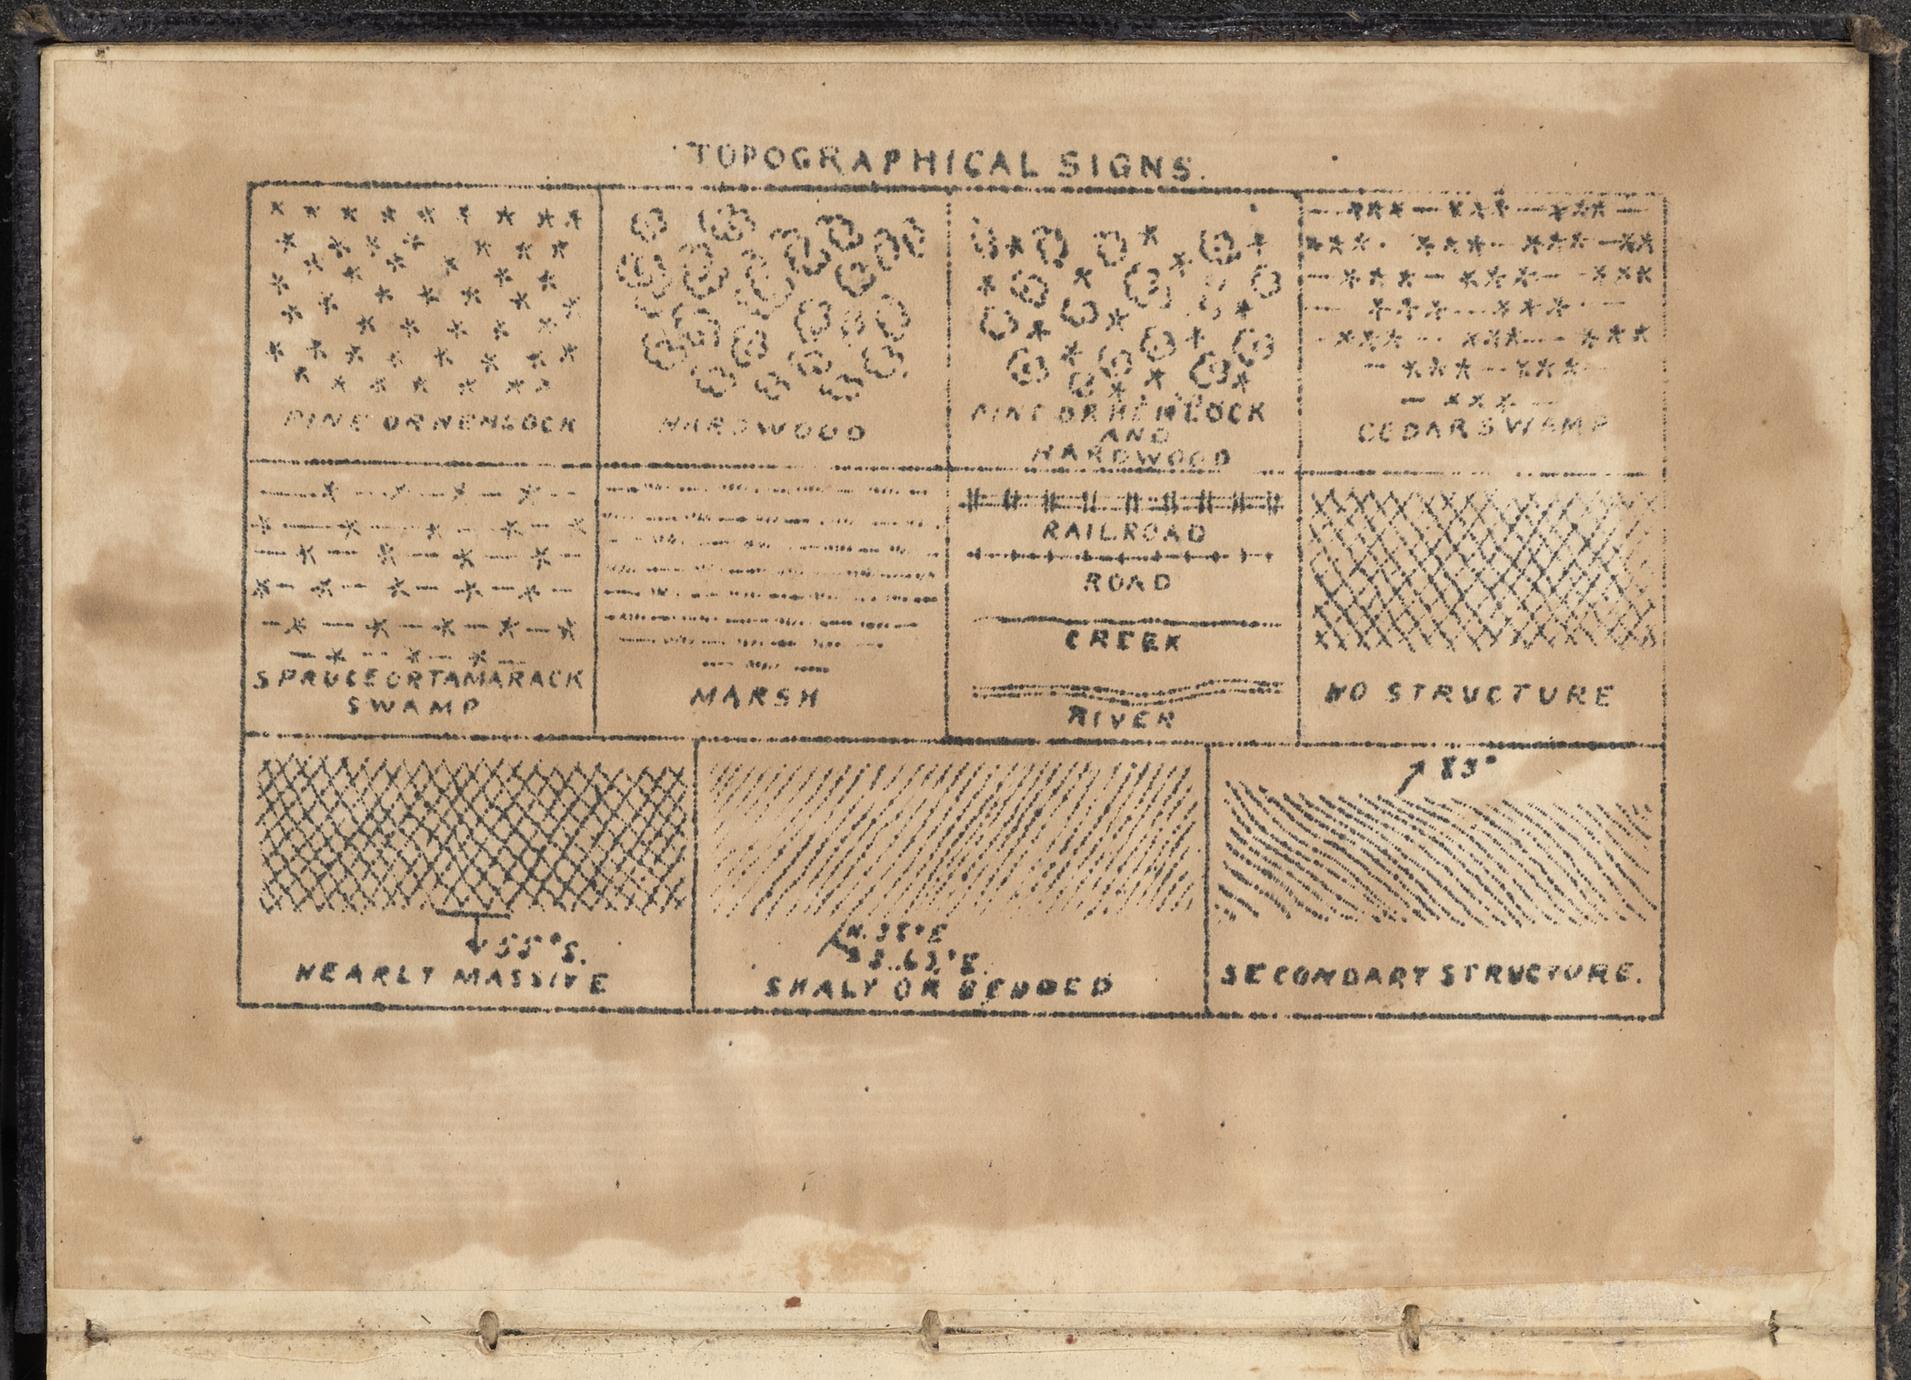 TOPOGRAPHICAL SIGNS.
PINE OR HEMLOCK
HARDWOOD
PINE OR HEMLOCK
AND
HARDWOOD
CEDAR SWAMP
SPRUCE OR TAMARACK
SWAMP
MARSH
RAILROAD
ROAD
CREEK
RIVER
NO STRUCTURE
55° S.
NEARLY MASSIVE
SHALY OR BEDDED
SECONDARY STRUCTURE.